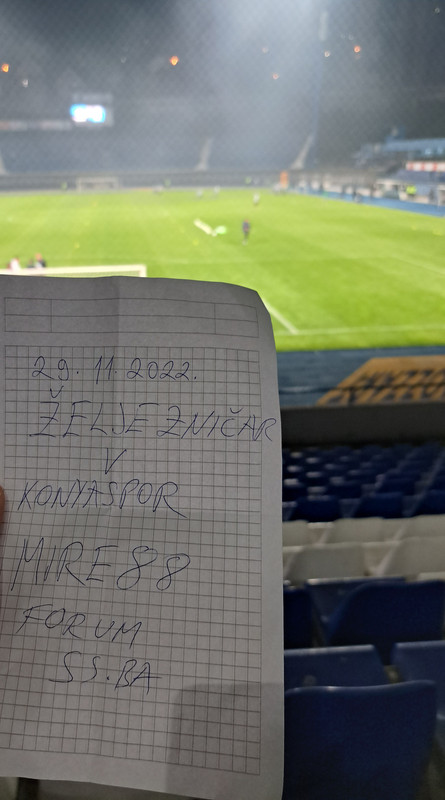 29. 11. 2022.
ŽELJEZNIČAR
V
KONYASPOR
MIRE88
FORUM
SS.BA